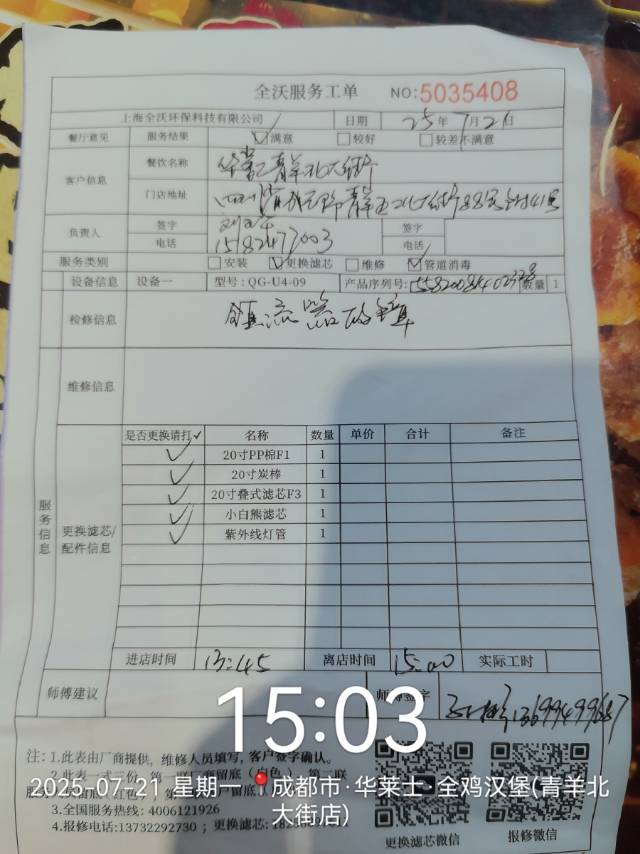 全沃服务工单 NO:5035408
上海全沃环保科技有限公司 日期 25年7月21
餐厅意见 服务结果 ☑满意 □较好 □较差不满意
客户信息 餐饮名称 华莱士青羊北大街
门店地址
负责人 签字 签字
电话 电话
服务类别 □安装 ☑更换滤芯 □维修 ☑管道消毒
设备信息 设备一 型号:QG-U4-09 产品序列号: 数量 1
检修信息
维修信息
服务信息
更换滤芯/配件信息
是否更换请打✓ 名称 数量 单价 合计 备注
✓ 20寸PP棉F1 1
✓ 20寸炭棒 1
✓ 20寸叠式滤芯F3 1
✓ 小白熊滤芯 1
✓ 紫外线灯管 1
进店时间 13:45 离店时间 15:00 实际工时
师傅建议 师傅签字 13699499687
15:03
注: 1.此表由厂商提供，维修人员填写，客户签字确认。
2.此表一式三份，第一联厂商留底（白色），第二联
2025-07-21 星期一 成都市·华莱士·全鸡汉堡(青羊北大街店)
3.全国服务热线: 4006121926
4.报修电话:13732292730 ; 更换滤芯:
更换滤芯微信 报修微信